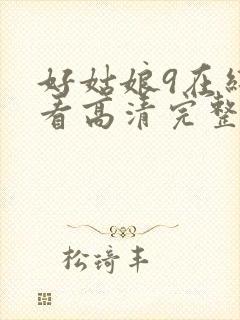 好姑娘9在线
看高清完整
松琦丰